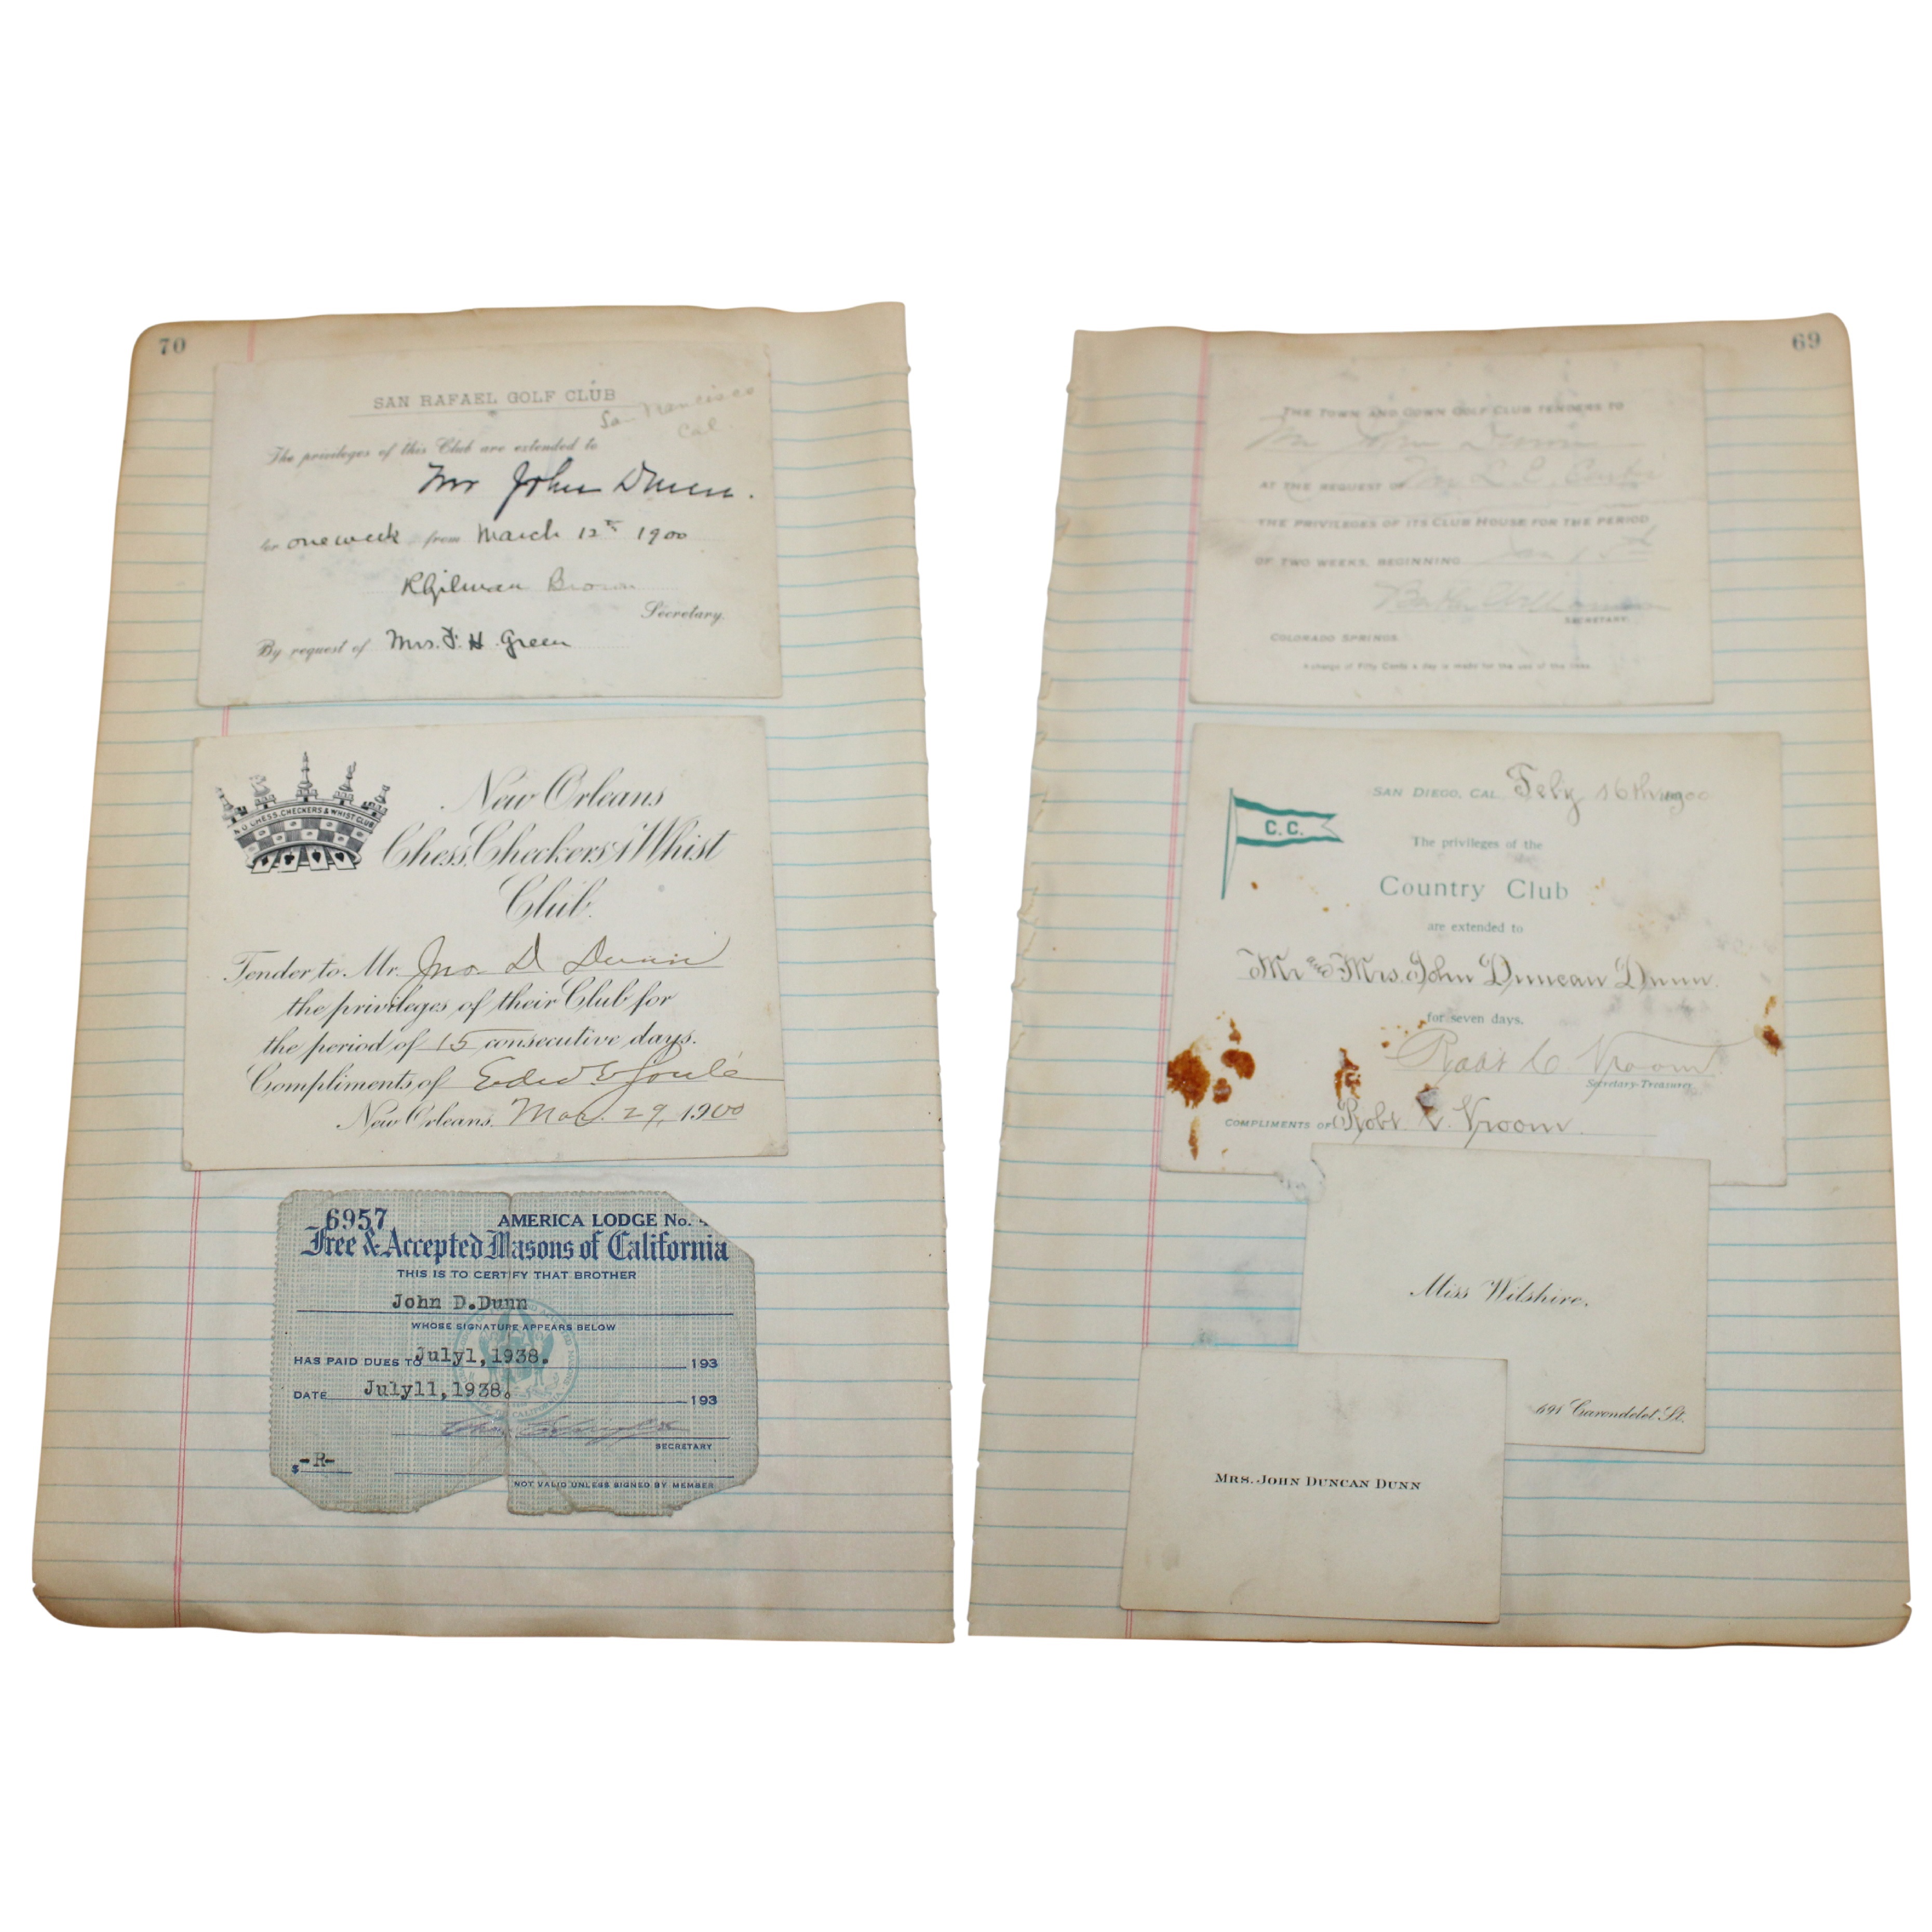 70
SAN RAFAEL GOLF CLUB
San Francisco
Cal.
The privileges of this Club are extended to
Mr John Dunn.
for one week from March 12th 1900
RGilman Brown
Secretary.
By request of Mrs. F. H. Green
N.O. CHESS, CHECKERS & WHIST CLUB
New Orleans
Chess, Checkers & Whist
Club.
Tender to Mr. Jno. D Dunn
the privileges of their Club for
the period of 15 consecutive days.
Compliments of
New Orleans, Mar. 29, 1900
6957
AMERICA LODGE No.
Free & Accepted Masons of California
THIS IS TO CERTIFY THAT BROTHER
John D.Dunn
WHOSE SIGNATURE APPEARS BELOW
HAS PAID DUES TO July1,1938. 193
DATE July11,1938. 193
SECRETARY
$ -R-
NOT VALID UNLESS SIGNED BY MEMBER
69
THE TOWN AND GOWN GOLF CLUB TENDERS TO
Mr John Dunn
AT THE REQUEST OF Mr L. C. Curtis
THE PRIVILEGES OF ITS CLUB HOUSE FOR THE PERIOD
OF TWO WEEKS, BEGINNING
SECRETARY.
COLORADO SPRINGS.
A charge of Fifty Cents a day is made for the use of the links.
SAN DIEGO, CAL. Feby 16th 1900
C. C.
The privileges of the
Country Club
are extended to
Mr and Mrs. John Duncan Dunn.
for seven days.
Robt C. Vroom
Secretary-Treasurer
COMPLIMENTS OF Robt. C. Vroom.
Miss Wilshire.
691 Carondelet St.
MRS. JOHN DUNCAN DUNN